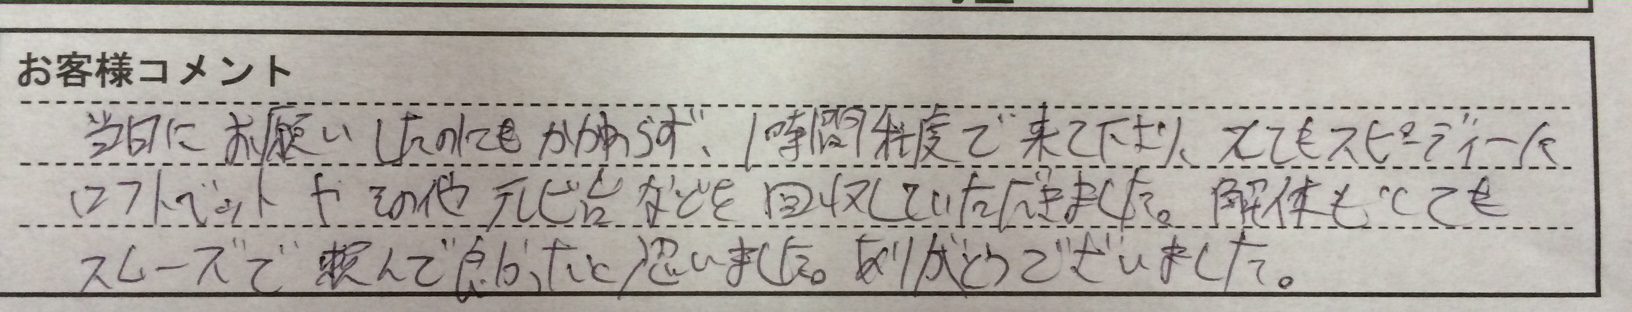 お客様コメント
当日にお願いしたのにもかかわらず、1時間程度で来て下さり、とてもスピーディーに
ロフトベットやその他テレビ台などを回収していただきました。解体もとても
スムーズで頼んで良かったと思いました。ありがとうございました。